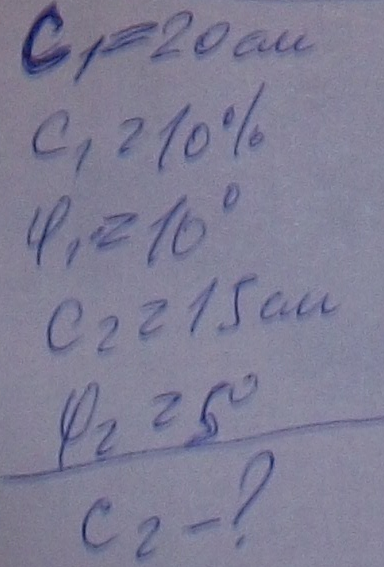 C₁=20см
C₁=10%
φ₁=10°
C₂=15см
φ₂=5°
C₂-?